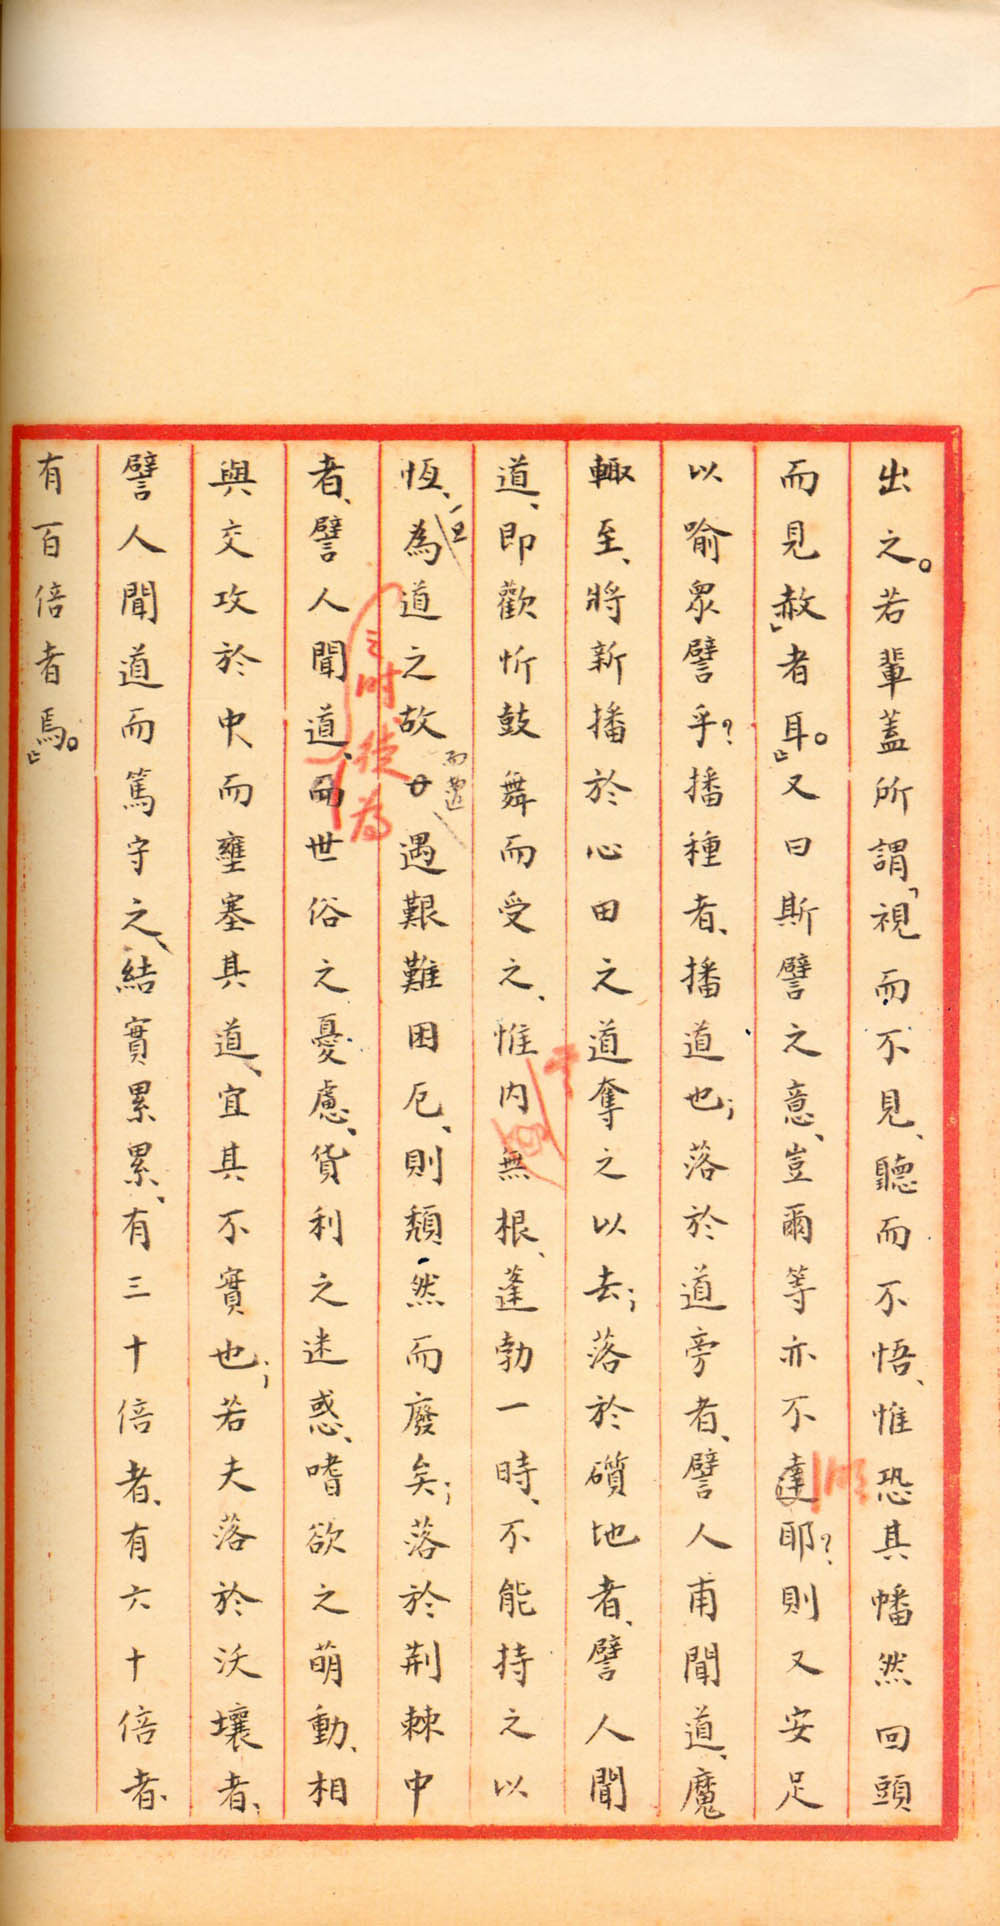 出之。若輩蓋所謂「視而不見、聽而不悟、惟恐其幡然回頭
而見赦」者耳。」又曰斯譬之意、豈爾等亦不達耶？則又安足
明
以喻眾譬乎？播種者、播道也；落於道旁者、譬人甫聞道、魔
輒至、將新播於心田之道奪之以去；落於磧地者、譬人聞
道、即歡忻鼓舞而受之、惟內無根、蓬勃一時、不能持之以
恆、為道之故而遭遇艱難困厄、則頹然而廢矣；落於荊棘中
之時徒為
者、譬人聞道、而世俗之憂慮、貨利之迷惑、嗜欲之萌動、相
與交攻於中、而壅塞其道、宜其不實也；若夫落於沃壤者；
譬人聞道而篤守之、結實累累、有三十倍者、有六十倍者、
有百倍者焉。」